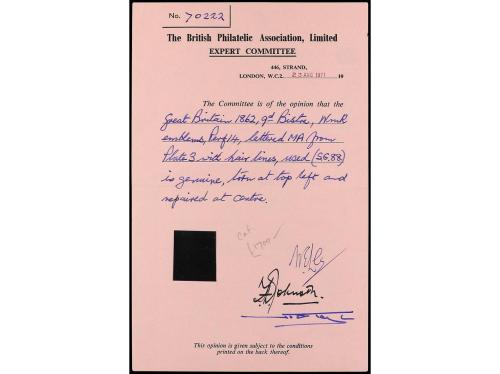 No. 70222
The British Philatelic Association, Limited
EXPERT COMMITTEE
446, STRAND,
LONDON, W.C.2. 23 AUG 1971 19
The Committee is of the opinion that the
Great Britain 1862, 9d Bistre, Wmk
emblems, Perf 14, lettered MA from
Plate 3 with hair lines, used (SG.88)
is genuine, torn at top left and
repaired at centre.
Cat.
Johnson.
This opinion is given subject to the conditions
printed on the back thereof.